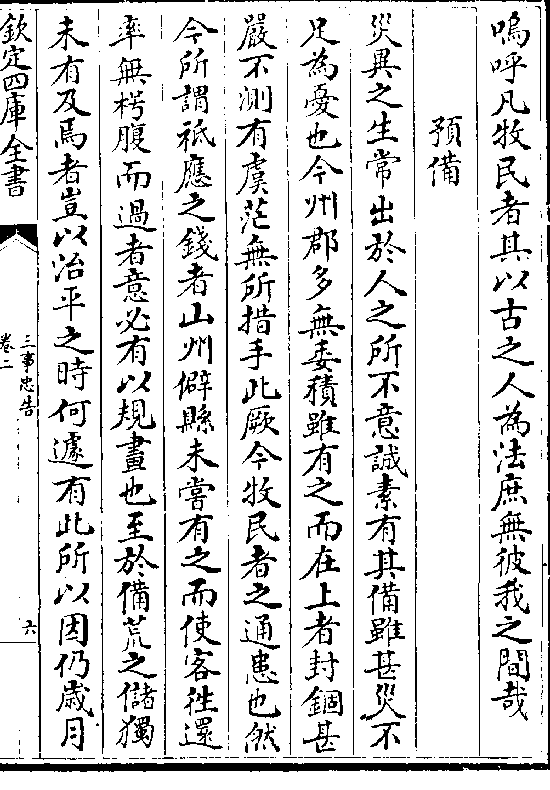 嗚呼凡牧民者其以古之人為法庶無彼我之間哉
預備
災異之生常出於人之所不意誠素有其備雖甚災不
足為憂也今州郡多無委積雖有之而在上者封錮甚
嚴不測有虞茫無所措手此厥今牧民者之通患也然
今所謂祇應之錢者山州僻縣未嘗有之而使客徃還
率無枵腹而過者意必有以規畫也至於備荒之儲獨
未有及焉者豈以治平之時何遽有此所以因仍歲月
欽定四庫全書
三事忠告
卷二
六